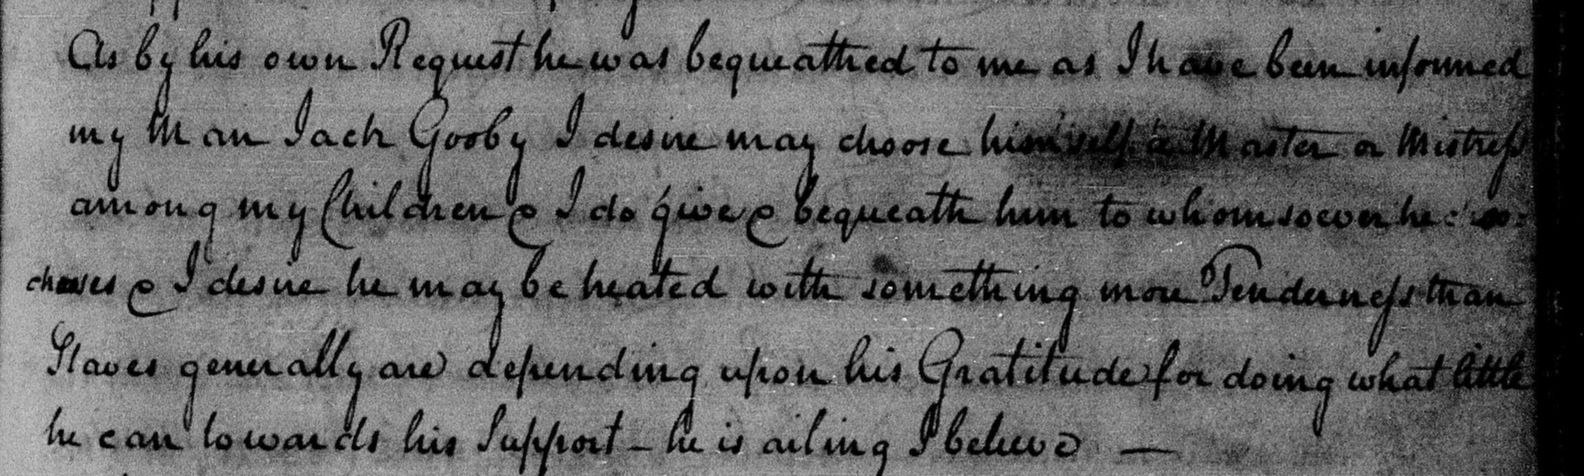 As by his own Request he was bequeathed to me as I have been informed
my Man Jack Gooby I desire may choose himself a Master or Mistress
among my Children & I do give & bequeath him to whomsoever he so
chooses & I desire he may be treated with something more Tenderness than
Slaves generally are depending upon his Gratitude for doing what little
he can towards his Support – he is ailing I believe —